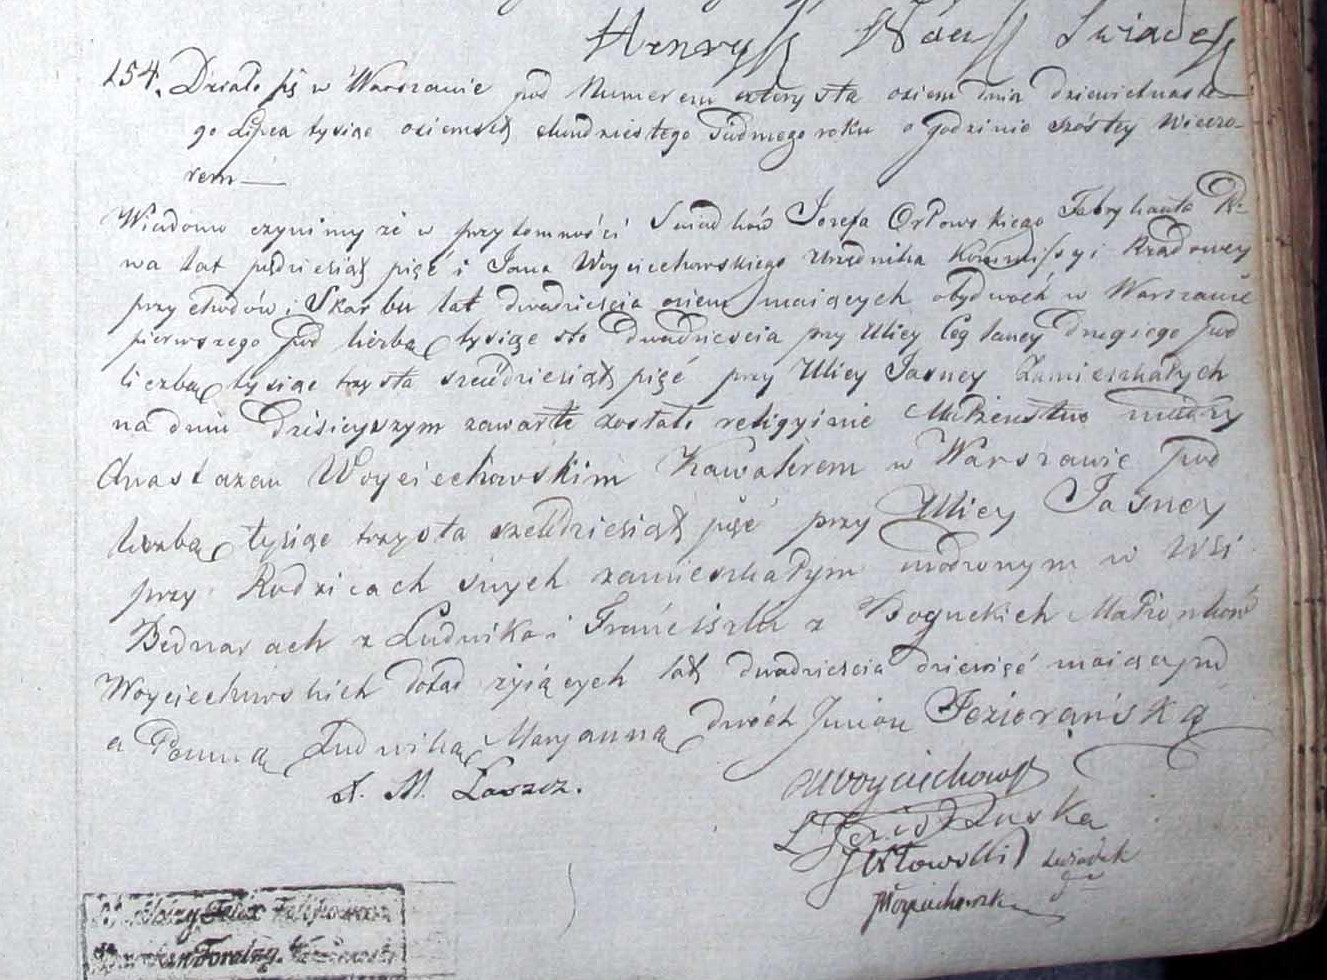 Henryk Świadek
154. Działo się w Warszawie pod Numerem czterysta osiem dnia dziewietnaste-
go Lipca tysiąc osiemset dwudziestego siudmego roku o godzinie szóstey wieczo-
rem —
Wiadomo czynimy że w przytomności Swiadków Jozefa Orłowskiego Fabrykanta Pi-
wa lat pędziesiąt pięć i Jana Woyciechowskiego Urzędnika Kommissyi Rządowey
przychodów i Skarbu lat dwadziescia osiem maiących obydwóch w Warszawie
pierwszego pod liczbą tysiąc sto dwadziescia przy Ulicy Ceglaney drugiego pod
liczbą tysiąc trzysta szesdziesiąt pięć przy Ulicy Jasney Zamieszkałych
na dniu dzisieyszym zawarte zostało religyinie Małżenstwo między
Anastazem Woyciechowskim Kawalerem w Warszawie pod
liczbą tysiąc trzysta szesdziesiąt pięć przy Ulicy Jasney
przy Rodzicach swych zamieszkałym urodzonym w Wsi
Bednarach z Ludwika i Franciszki z Boguckich Małżonków
Woyciechowskich dotąd żyiących lat dwadziescia dziewięć maiącym
a Panną Ludwiką Maryanną dwóch Imion Jezierańską
A. M. Laszcz.
AWoyciechowsk
L Jezierańska
JOrłowski świadek
JWoyciechowski
Felix